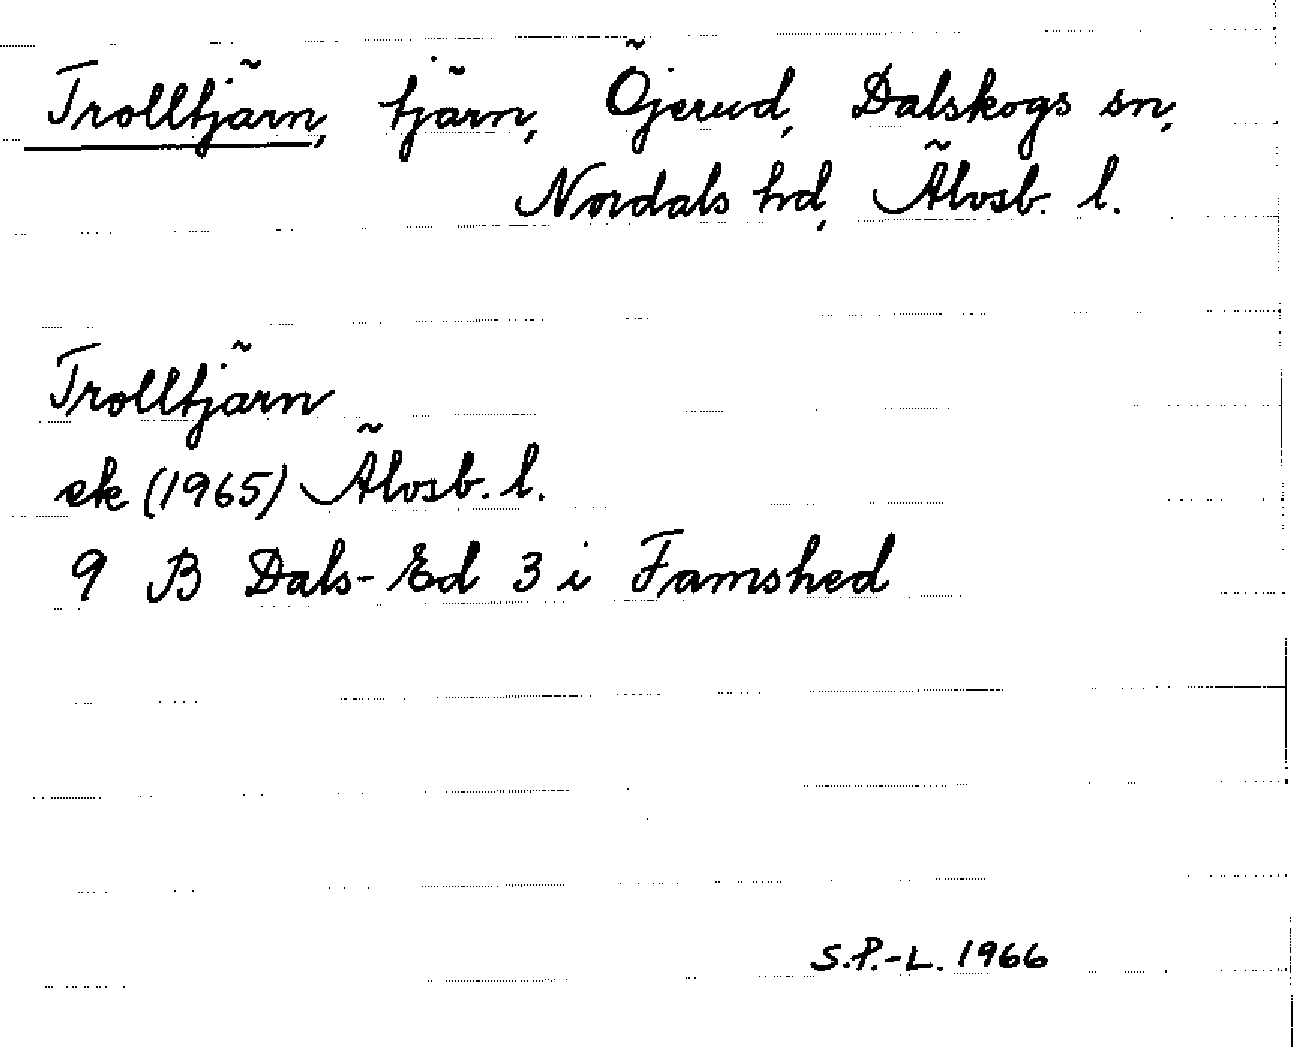 Trolltjärn, tjärn, Öjerud, Dalskogs sn,
Nordals hd, Älvsb. l.
Trolltjärn
ek (1965) Älvsb. l.
9 B Dals-Ed 3 i Famshed
S.P.-L. 1966